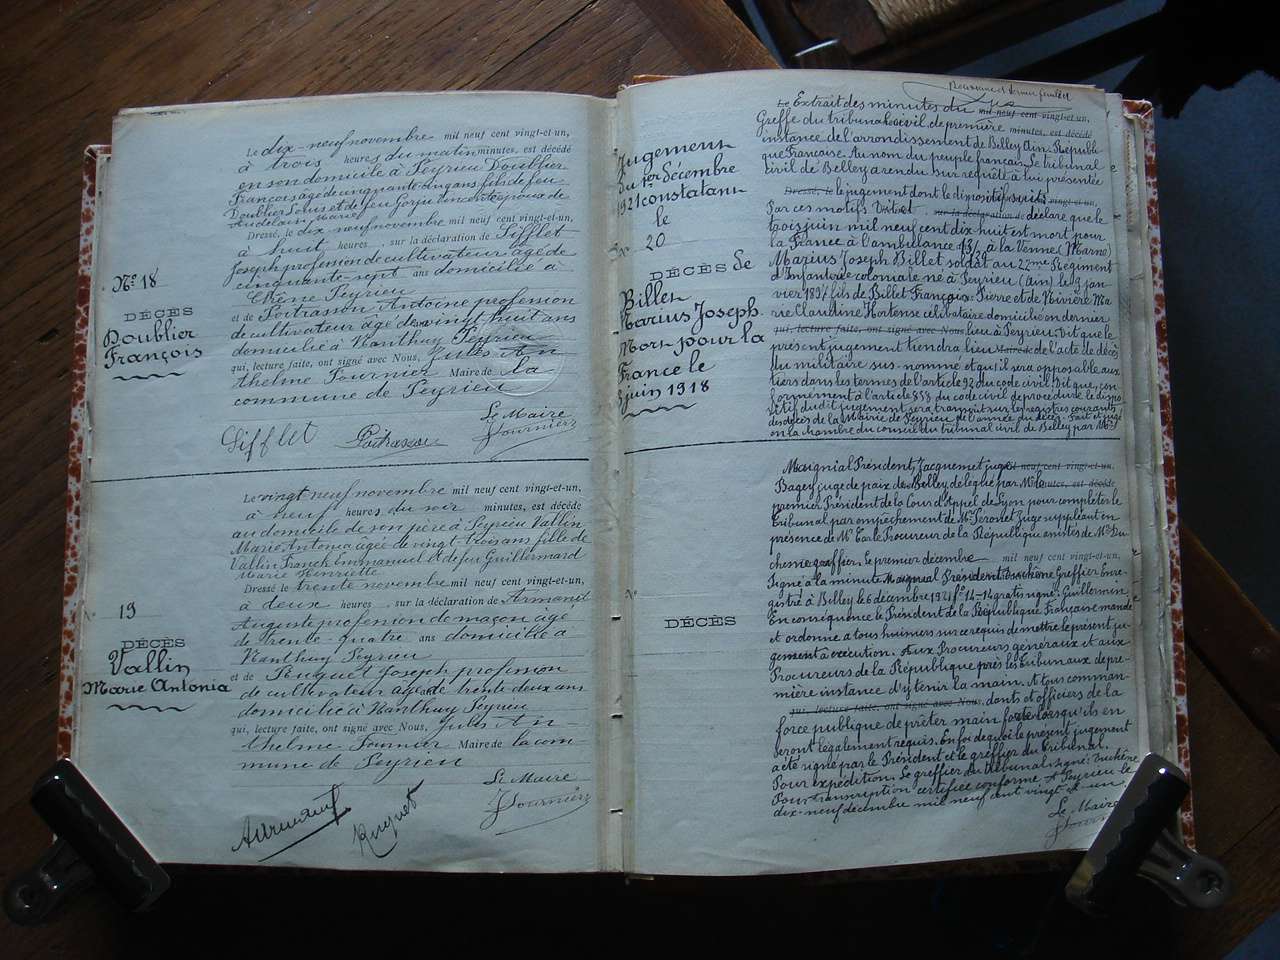 Nº 18
DÉCÈS
Doublier
François
Le dix-neuf novembre mil neuf cent vingt-et-un,
à trois heures du matin minutes, est décédé
en son domicile à Peyrieu Doublier
François âgé de cinquante cinq ans fils de feu
Doublier Louis et de feu époux de
Marie
Dressé, le dix-neuf novembre mil neuf cent vingt-et-un,
à huit heures, sur la déclaration de Sifflet
Joseph profession de cultivateur âgé de
cinquante-sept ans domicilié à
Peyrieu
et de Poitrasson Antoine profession
de cultivateur âgé de vingt huit ans
domicilié à Nanthuy Peyrieu
qui, lecture faite, ont signé avec Nous, Jules An
thelme Fournier Maire de la
commune de Peyrieu
Le Maire
Sifflet Poitrasson JFournier
Nº 19
DÉCÈS
Vallin
Marie Antonia
Le vingt neuf novembre mil neuf cent vingt-et-un,
à neuf heures du soir minutes, est décédé
au domicile de son père à Peyrieu Vallin
Marie Antonia âgée de vingt-trois ans fille de
Vallin Franck Emmanuel et de feu Guillermard
Marie Henriette
Dressé le trente novembre mil neuf cent vingt-et-un,
à deux heures, sur la déclaration de Armand
Auguste profession de maçon âgé
de trente-quatre ans domicilié à
Nanthuy Peyrieu
et de Ruguet Joseph profession
de cultivateur âgé de trente deux ans
domicilié à Nanthuy Peyrieu
qui, lecture faite, ont signé avec Nous, Jules An
thelme Fournier Maire de la com
mune de Peyrieu
Le Maire
Armand Ruguet JFournier
Jugement
du 1er décembre
1921 constatant
le
Nº 20
DÉCÈS de
Billet
Marius Joseph
Mort pour la
France le
3 juin 1918
Le Extrait des minutes du mil neuf cent vingt-et-un,
Greffe du tribunal civil de première minutes, est décédé
instance de l'arrondissement de Belley Ain. Républi
que Française. Au nom du peuple français. Le tribunal
civil de Belley a rendu sur requête à lui présentée
Dressé, le le jugement dont le dispositif suit: vingt-et-un,
Par ces motifs sur la déclaration de déclare que le
trois juin mil neuf cent dix-huit est mort pour
la France à l'ambulance à la Veuve (Marne)
Marius Joseph Billet soldat au 22me Régiment
d'Infanterie coloniale né à Peyrieu (Ain) le 9 jan
vier 1897 fils de Billet François Pierre et de Ma
rie Claudine Hortense célibataire domicilié en dernier
qui, lecture faite, ont signé avec Nous lieu à Peyrieu. Dit que le
présent jugement tiendra lieu Maire de de l'acte de décès
du militaire sus-nommé et qu'il sera opposable aux
tiers dans les termes de l'article 92 du code civil. Dit que, con
formément à l'article 858 du code civil de procédure le dispo
sitif dudit jugement sera transcrit sur les registres courants
des décès de la Mairie de Peyrieu de l'année du décès. Fait et jugé
en la chambre du conseil du tribunal civil de Belley, par MM.
DÉCÈS
Maignial Président, Jacquemet juge mil neuf cent vingt-et-un,
Bagey juge de paix de Belley délégué par M. le minutes, est décédé
premier Président de la Cour d'Appel de Lyon pour compléter le
tribunal par empêchement de Mr Peronet Juge suppléant en
présence de Mr Procureur de la République assistés de Me Du
chêne greffier. Le premier décembre mil neuf cent vingt-et-un,
Signé à la minute Maignial Président Duchêne Greffier Enre
gistré à Belley le 6 décembre 1921 fº 14-14 gratis signé: Guillermin
En conséquence le Président de la République Française mande
et ordonne à tous huissiers sur ce requis de mettre le présent ju
gement à exécution. Aux Procureurs généraux et aux
Procureurs de la République près les tribunaux de pre
mière instance d'y tenir la main. A tous comman
qui, lecture faite, ont signé avec Nous, dants et officiers de la
force publique de prêter main forte lorsqu'ils en
seront légalement requis. En foi de quoi le présent jugement
a été signé par le Président et le greffier du tribunal.
Pour expédition. Le greffier du tribunal signé: Duchêne
Pour transcription certifiée conforme. A Peyrieu le
dix-neuf décembre mil neuf cent vingt et un.
Le Maire
JFournier